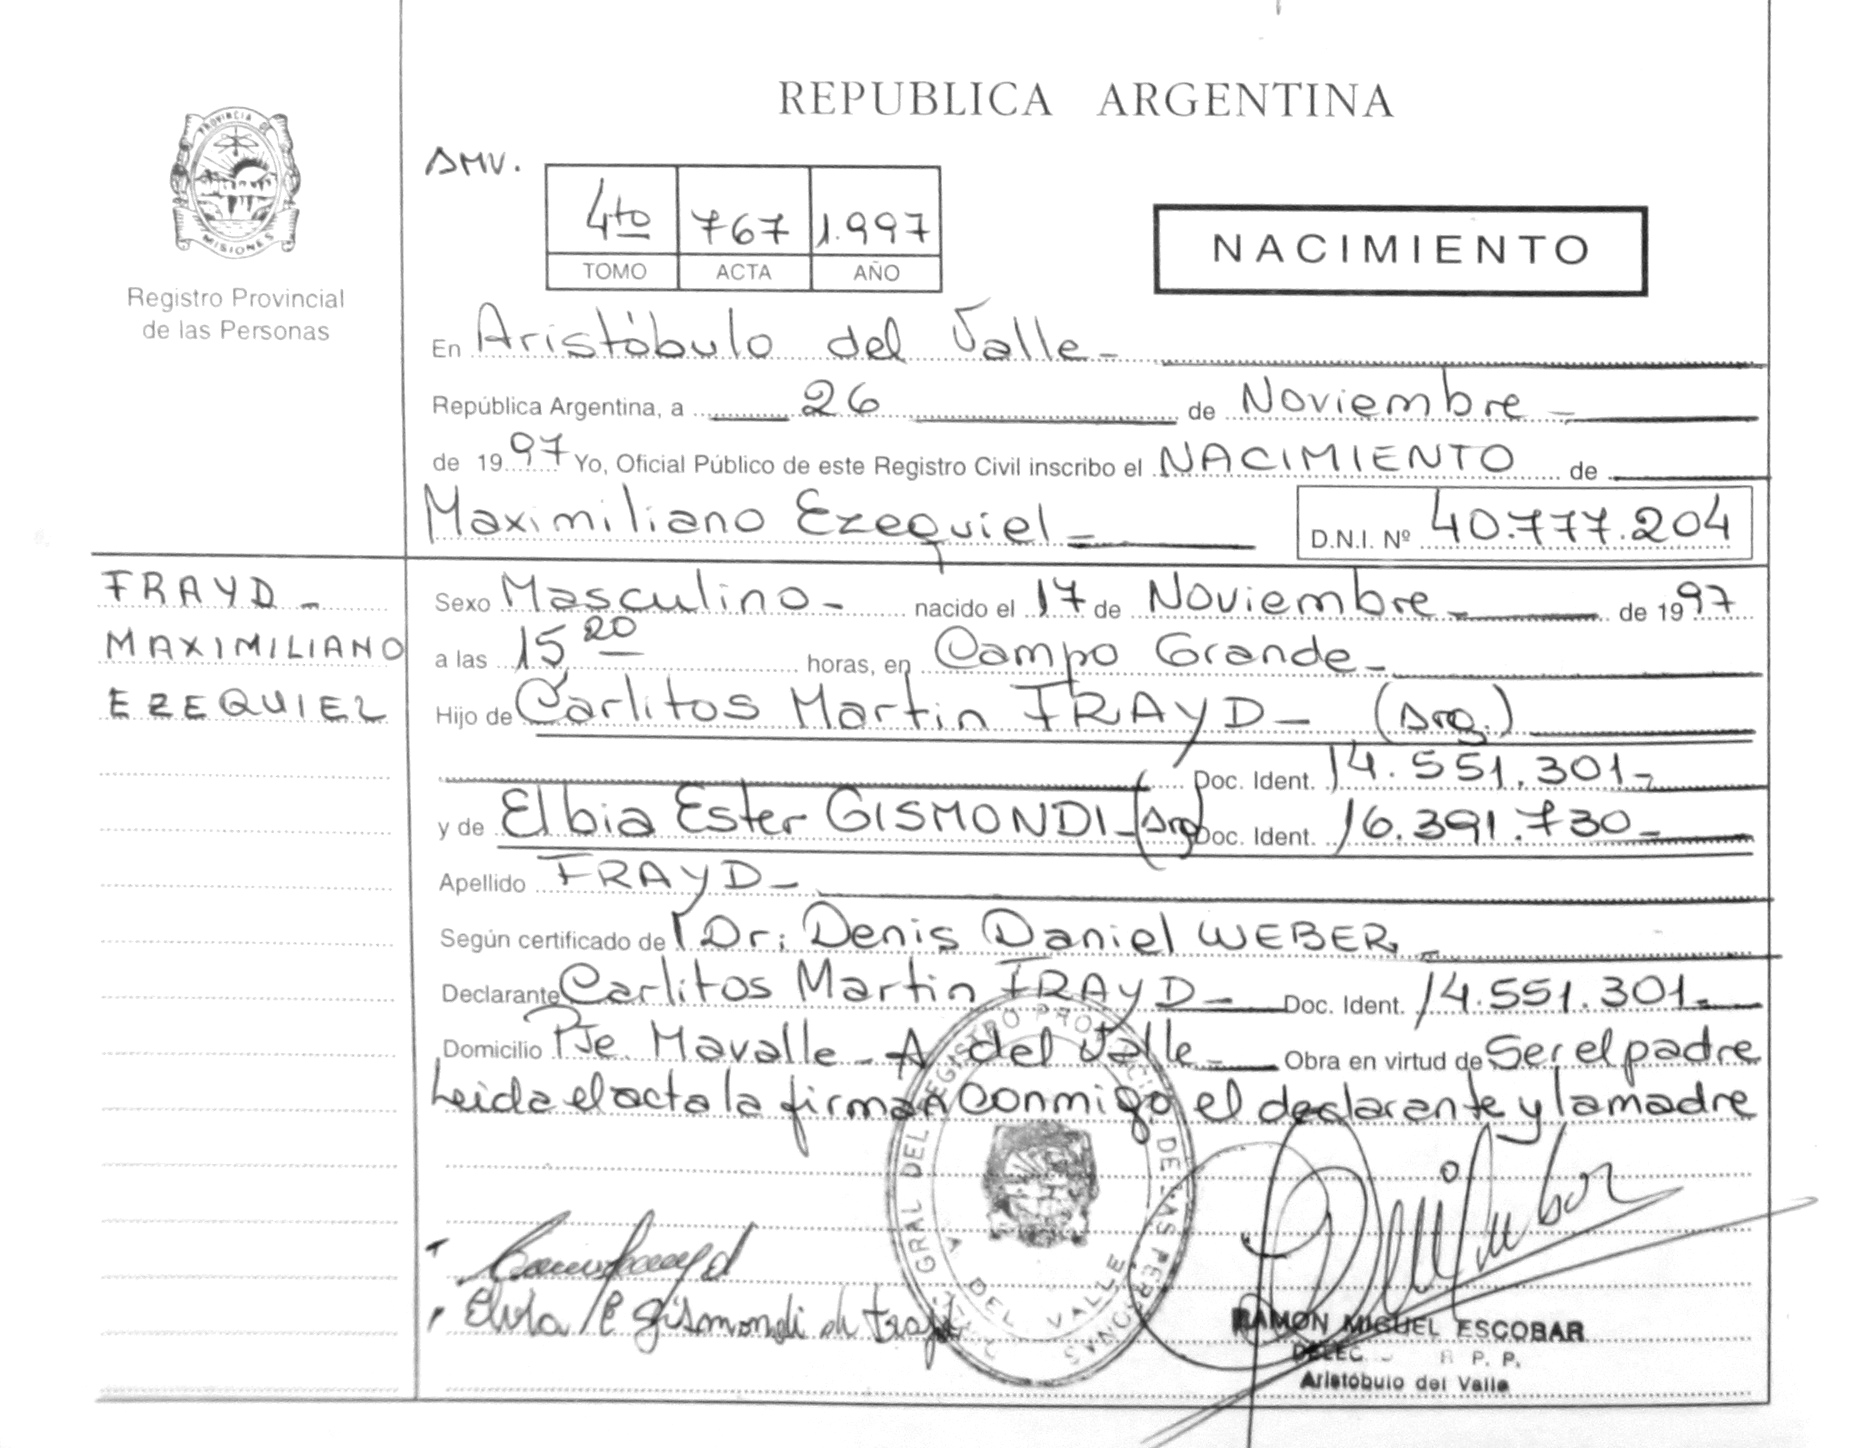 REPUBLICA ARGENTINA
PROVINCIA DE
MISIONES
Registro Provincial
de las Personas
AMV.
4to 767 1.997
TOMO ACTA AÑO
NACIMIENTO
En Aristóbulo del Valle -
República Argentina, a 26 de Noviembre -
de 1997 Yo, Oficial Público de este Registro Civil inscribo el NACIMIENTO de
Maximiliano Ezequiel - D.N.I. Nº 40.777.204
FRAYD -
MAXIMILIANO
EZEQUIEL
Sexo Masculino - nacido el 17 de Noviembre - de 1997
a las 15 20 horas, en Campo Grande -
Hijo de Carlitos Martin FRAYD - (Arg.)
Doc. Ident. 14.551.301 -
y de Elbia Ester GISMONDI - (Arg) Doc. Ident. 16.391.730 -
Apellido FRAYD -
Según certificado de Dr: Denis Daniel WEBER. -
Declarante Carlitos Martin FRAYD - Doc. Ident. 14.551.301 -
Domicilio Pje. Mavalle - A del Valle - Obra en virtud de Ser el padre
Leida el acta la firman conmigo el declarante y la madre
GRAL DEL REGISTRO PROVINCIAL DE LAS PERSONAS
A DEL VALLE
Gismondi de
RAMON MIGUEL ESCOBAR
R. P. P.
Aristóbulo del Valle